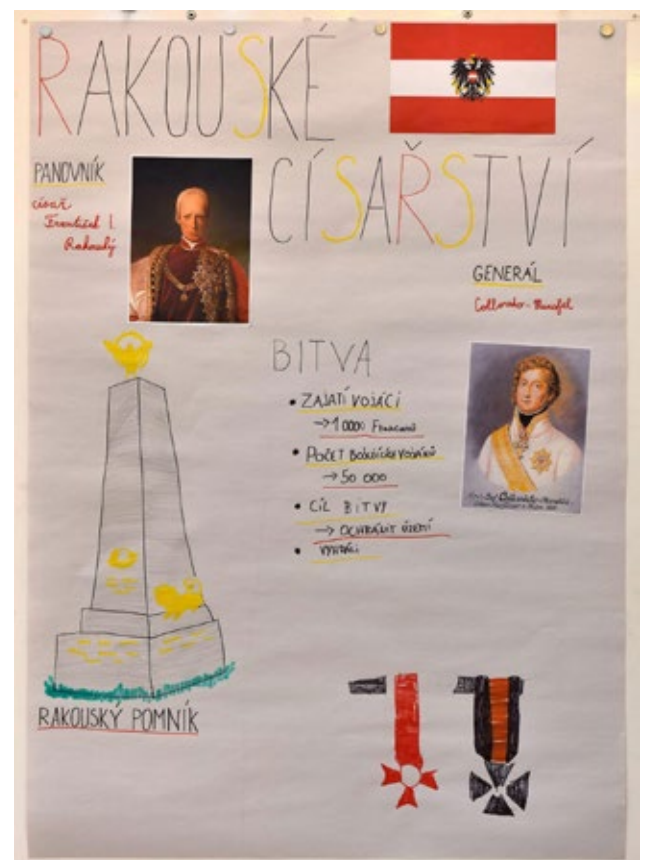 RAKOUSKÉ
CÍSAŘSTVÍ
PANOVNÍK
císař
František I.
Rakouský
GENERÁL
Colloredo-
BITVA
• ZAJATÍ VOJÁCI
→ 10000 Francouzů
• POČET BOJUJÍCÍCH VOJÁKŮ
→ 50 000
• CÍL BITVY
→ OCHRÁNIT ÚZEMÍ
• VYHRÁLI
RAKOUSKÝ POMNÍK